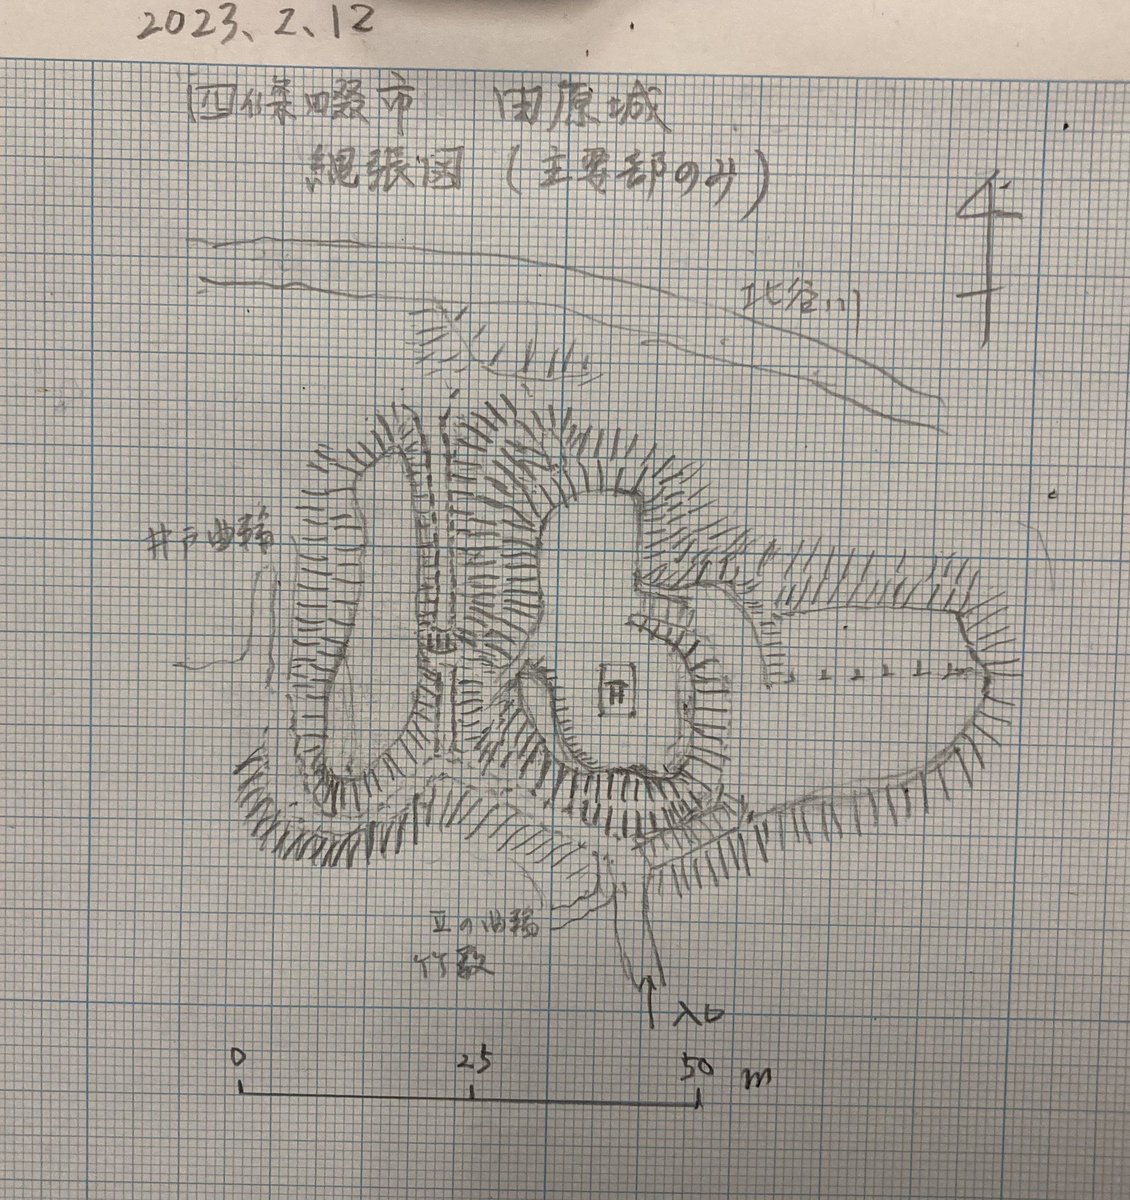 2023、2、12
四條畷市 田原城
縄張図（主要部のみ）
北谷川
井戸曲輪
Ⅱの曲輪
竹藪
入口
0 25 50 m